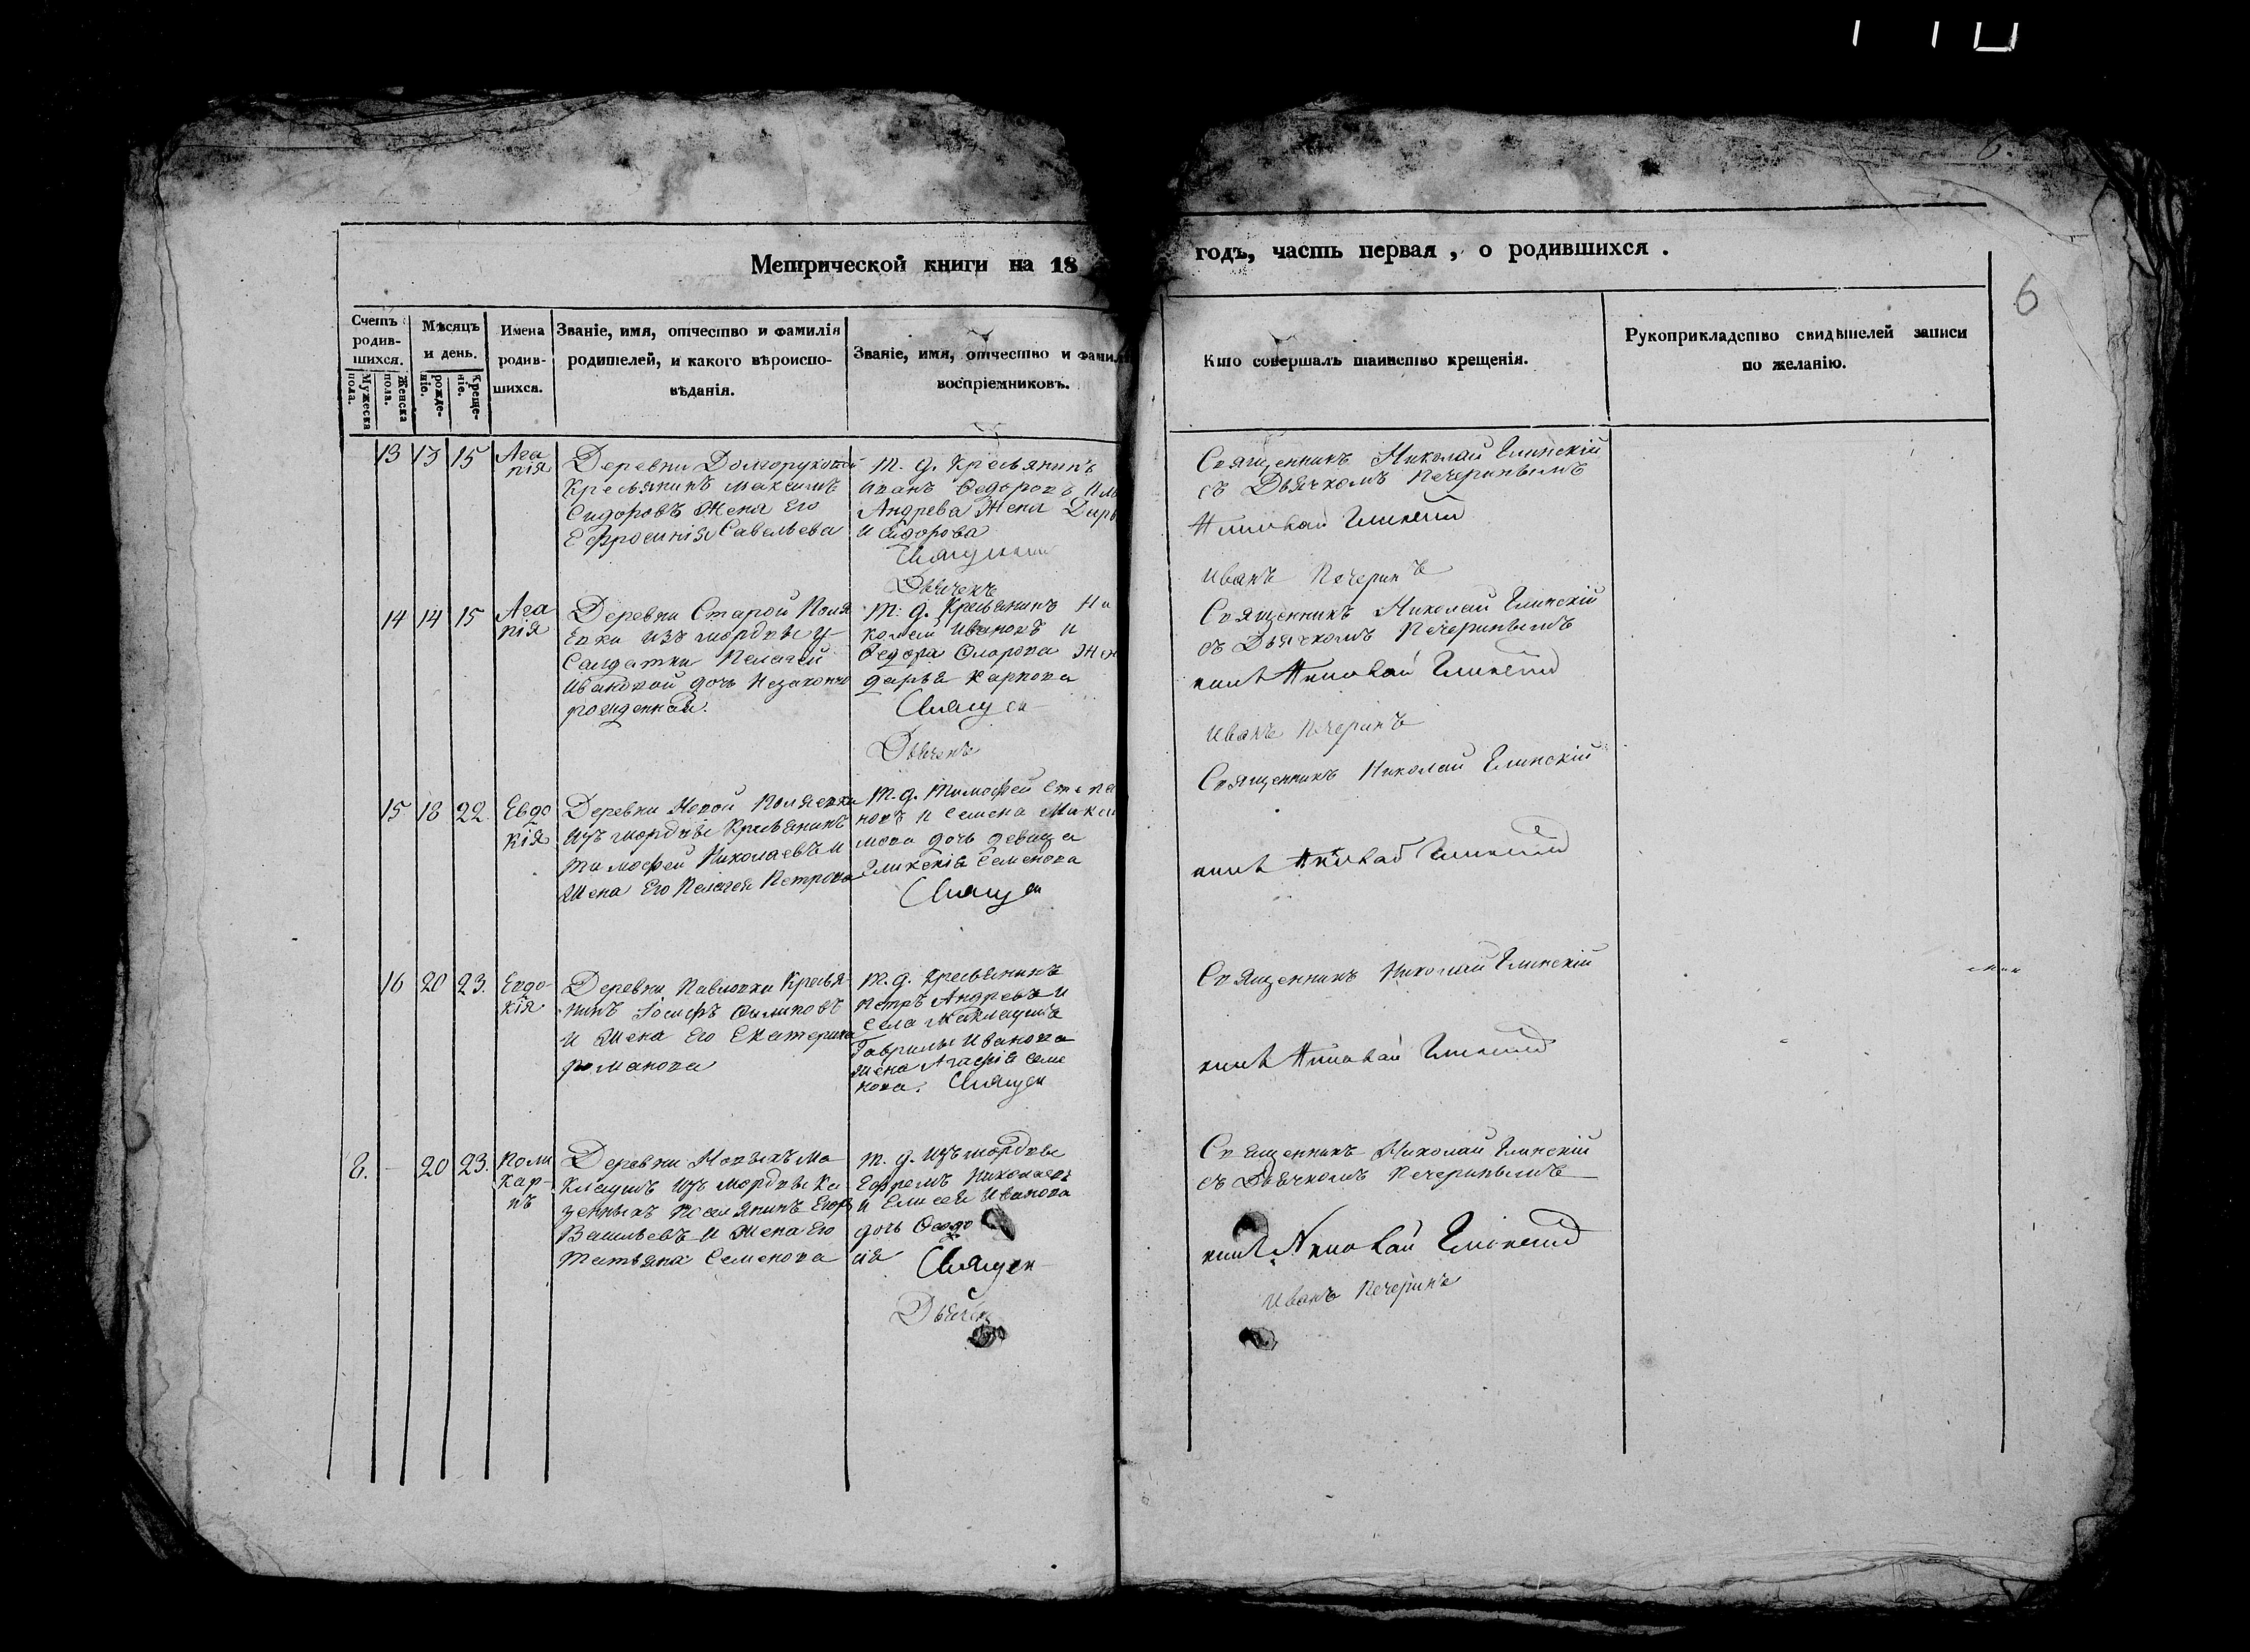 6.
Метрической книги на 18
годъ, часть первая, о родившихся.
6
Счетъ родившихся.
Мужеска пола.
Женска пола.
Мѣсяцъ и день.
рожденіе.
крещеніе.
Имена родившихся.
Званіе, имя, отчество и фамилія
родителей, и какого вѣроиспо-
вѣданія.
Званіе, имя, отчество и фамил
воспріемниковъ.
Кто совершалъ таинство крещенія.
Рукоприкладство свидѣтелей записи
по желанію.
13 13 15
Ага
пія
Деревни Долгоруковой
Крестьянинъ Максимъ
Сидоровъ Жена Его
Ефросинія Савельева
т. д. Крестьянинъ
Иванъ Федоровъ
Андрева Жена Дарь
Исидорова
Священник
Дьячекъ
Священникъ Николай Глинскій
съ Дьячкомъ Печеринымъ
Николай Глинскій
Иванъ Печеринъ
14 14 15
Ага
пія
Деревни Старой Поля
Евки изъ мордвы
Салдатки Пелагеи
Ивановой дочь Незаконно
рожденная.
т. д. Крестьянинъ Ни
колай Ивановъ и
Федора Жен
дарья Карпова
Священ
Дьячекъ
Священникъ Николай Глинскій
съ Дьячкомъ Печеринымъ
никъ Николай Глинскій
Иванъ Печеринъ
15 18 22
Евдо
кія
Деревни Новой Поляевки
изъ мордвы Крестьянинъ
Тимофей Николаевъ и
Жена Его Пелагея Петрова
т. д. Тимофей Степа
новъ и Семена Макси
мова дочь девица
Гликерія Семенова
Священ
Священникъ Николай Глинскій
никъ Николай Глинскій
16 20 23.
Евдо-
кія
Деревни Павловки Крестья
нинъ Іосифъ Филиповъ
и Жена Его Екатерина
романова
т. д. Крестьянинъ
петръ Андревъ и
Села Маклауша
Гаврилы Иванова
жена Агафія Семе
нова. Священ
Священникъ Николай Глинскій
никъ Николай Глинскій
8. - 20 23.
Поли
кар-
пъ
Деревни Новыхъ Ма
клаушъ изъ мордвы Ка
зенныхъ Поселянинъ Егоръ
Васильевъ и Жена Его
Татьяна Семенова
т. д. изъ мордвы
Ефремъ Николаевъ
и Елисея Иванова
дочь Феодо
сія Священ
Дьячек
Священникъ Николай Глинскій
съ Дьячкомъ Печеринымъ
никъ Николай Глинскій
Иванъ Печеринъ